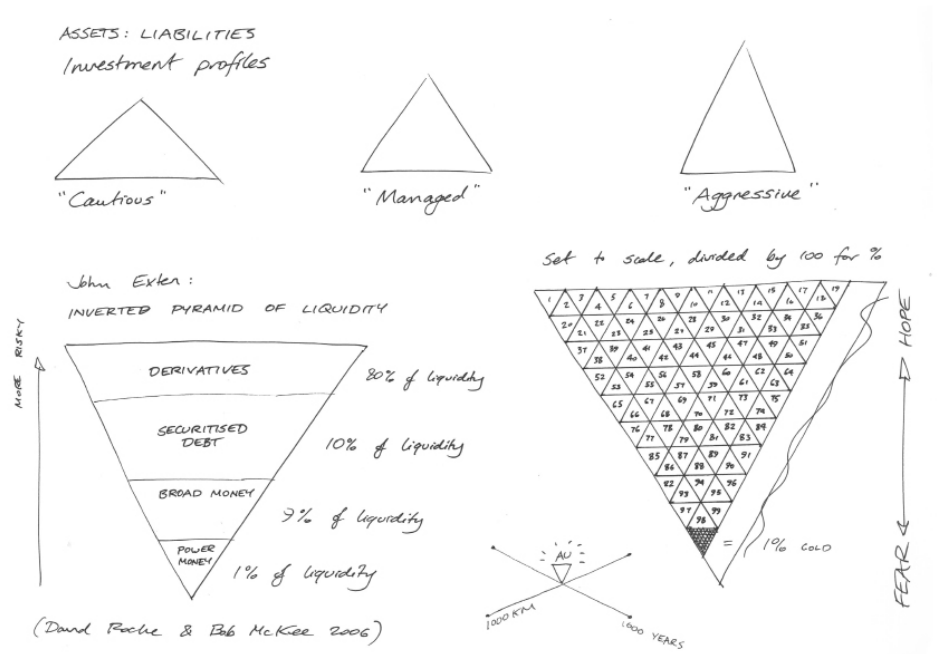 ASSETS: LIABILITIES
Investment profiles
"Cautious"
"Managed"
"Aggressive"
John Exter:
INVERTED PYRAMID OF LIQUIDITY
MORE RISKY
DERIVATIVES
80% of liquidity
SECURITISED
DEBT
10% of liquidity
BROAD MONEY
9% of liquidity
POWER
MONEY
1% of liquidity
(David Roche & Bob McKee 2006)
Set to scale, divided by 100 for %
1 2 3 4 5 6 7 8 9 10 11 12 13 14 15 16 17 18 19
20 21 22 23 24 25 26 27 28 29 30 31 32 33 34 35 36
37 38 39 40 41 42 43 44 45 46 47 48 49 50 51
52 53 54 55 56 57 58 59 60 61 62 63 64
65 66 67 68 69 70 71 72 73 74 75
76 77 78 79 80 81 82 83 84
85 86 87 88 89 90 91
92 93 94 95 96
97 98 99
= 1% GOLD
HOPE
FEAR
AU
1000 KM
1000 YEARS